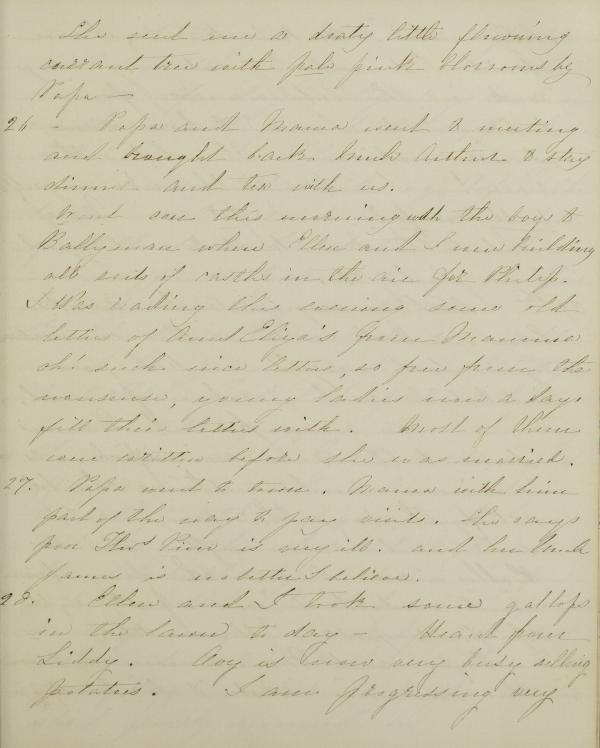 She sent me a draty little flowering
currant tree with pale pink blossoms by
Papa —
26 - Papa and Mama went to meeting
and brought back Uncle Arthur to stay
dinner and tea with us.
Went out this morning with the boys to
Ballyman where Ellen and I were building
all sorts of castles in the air for Philip.
I was reading this evening some old
letters of Aunt Eliza's from Mamma
oh! such nice letters, so free from the
nonsense, young ladies now a days
fill their letters with. Most of them
were written before she was married.
27. Papa went to town. Mama with him
part of the way to pay visits. She says
poor Thos Pim is very ill. and her Uncle
James is no better I believe.
28. Ellen and I took some gallops
in the lawn to day — Heard from
Liddy. Avy is now very busy selling
potatoes. I am progressing very